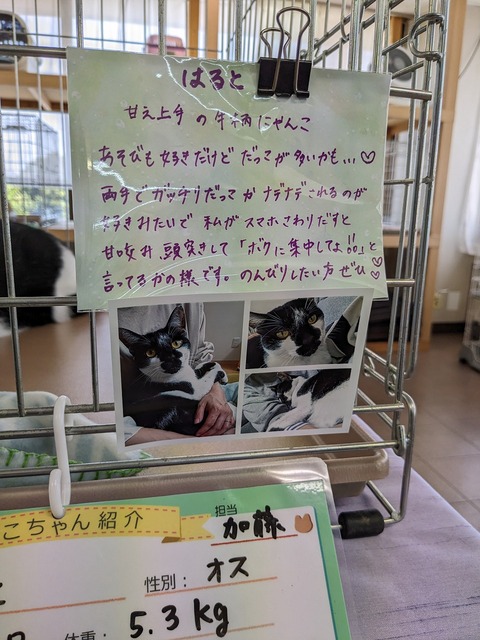 はると
甘え上手 の 牛柄 にゃんこ
あそびも 好きだけど だっこが 多いかも… ♡
両手で ガッチリだっこ か ナデナデ されるのが
好きみたいで 私が スマホ さわりだすと
甘咬み 頭突きして 「ボクに 集中してよ!!」と
言ってるかの様です。のんびりしたい方 ぜひ♡
こちゃん紹介
担当
加藤
性別： オス
体重： 5.3 kg